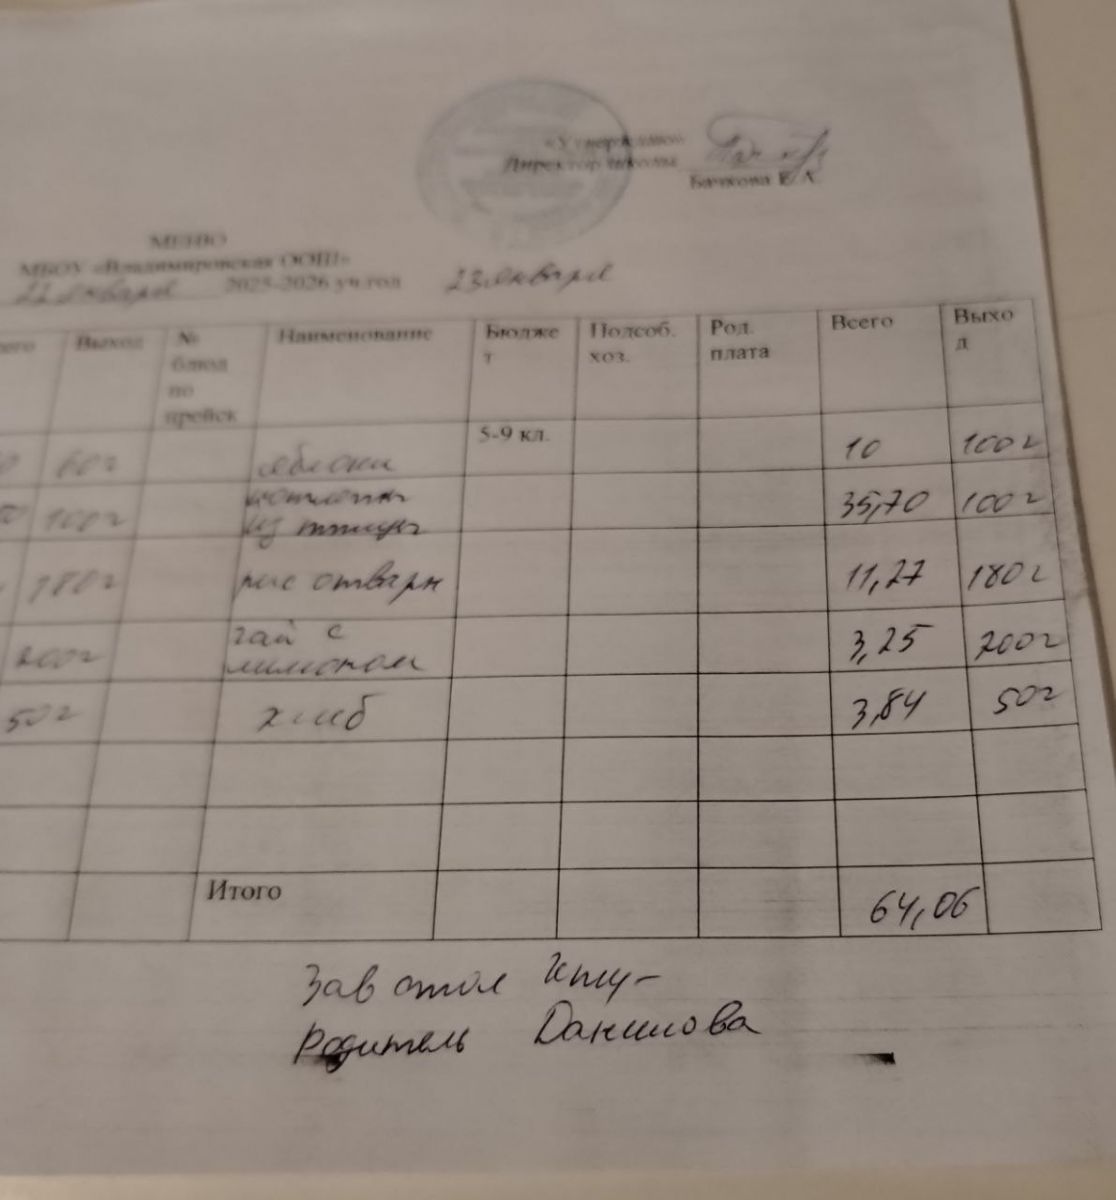 «Утверждаю»
Директор школы
Бачкова Е.А.
МЕНЮ
МБОУ «Владимировская ООШ»
22 января 2025-2026 уч.год 23 января
Выход № блюд по прейск Наименование Бюджет Подсоб. хоз. Род. плата Всего Выход
5-9 кл.
60г яблоки 10 100г
100г котлеты
из птицы 35,70 100г
180г рис отварн 11,27 180г
200г чай с
лимоном 3,25 200г
50г хлеб 3,84 50г
Итого 64,06
Зав стол
родитель Данилова